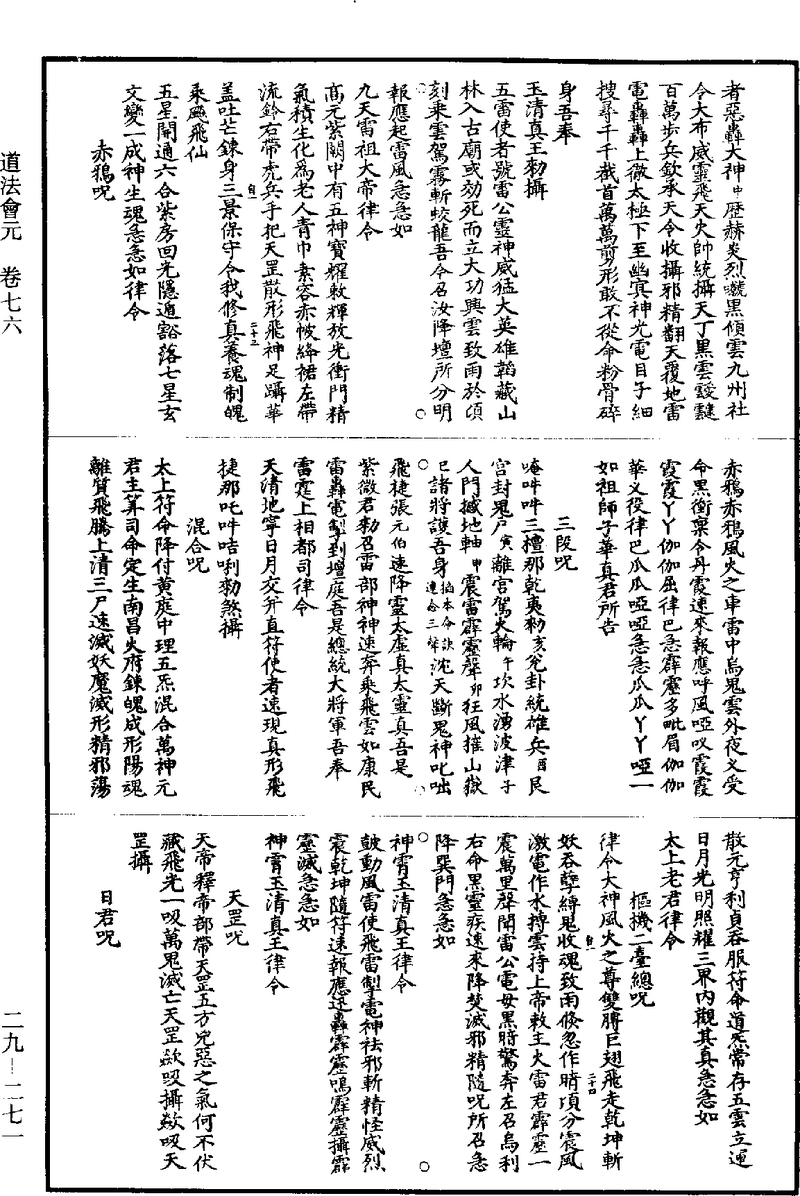 道法會元　卷七六
二九—二七一
者惡轟大神中歷赫炎烈囈黑傾雲九州社
令大布威靈飛天火帥統攝天丁黑雲靉靆
百萬步兵欽承天令收攝邪精翻天覆地雷
電轟轟上徹太極下至幽冥神光電目子細
搜尋千千截首萬萬剪形敢不從命粉骨碎
身吾奉
玉清真王勑攝
五雷使者號雷公靈神威猛大英雄韜藏山
林入古廟或効死而立大功興雲致雨於頃
刻乘雲駕霧斬蛟龍吾令召汝降壇所分明
報應起雷風急急如
九天雷祖大帝律令
高元紫闕中有五神寶耀敕輝放光衝門精
氣積生化為老人青巾素容赤帔絳裙左帶
流鈴右帶虎兵手把天罡散形飛神足躡華
盖吐芒鍊身三景保守令我修真養魂制魄
乘飈飛仙
五星開通六合紫房回光隱遁豁落七星玄
文變一成神生魂急急如律令
赤鴉呪
赤鴉赤鴉風火之車雷中烏鬼雲外夜义受
命黑衝稟令丹霞速來報應呼風啞㕚霞霞
霞霞丫丫伽伽屈律巴急霹靂多毗眉伽伽
華义役律巴瓜瓜啞啞急急瓜瓜丫丫啞一
如祖師子華真君所告
三段呪
唵吽吽三檀那乾夷勑亥兊卦統雄兵酉艮
宮封鬼戶寅離宮駕火輪午坎水湧波津子
人門撼地軸申震雷霹靂聲卯狂風摧山嶽
巳諸將護吾身掐本命訣連念三聲沈天斷鬼神叱咄
飛捷張元伯速降靈太虛真太靈真吾是
紫微君勑召雷部神神速奔乘飛雲如康民
雷轟電掣到壇庭吾是總統大將軍吾奉
雷霆上相都司律令
天清地寧日月交并直符使者速現真形飛
捷那吒吽咭唎勑煞攝
混合呪
太上符命降付黃庭中理五炁混合萬神元
君主筭司命定生南昌火府鍊魄成形陽魂
離質飛騰上清三尸速滅妖魔滅形精邪蕩
散元亨利貞吞服符命道炁常存五雲立運
日月光明照耀三界內觀其真急急如
太上老君律令
樞機二臺總呪
律令大神風火之尊雙膊巨翅飛走乾坤斬
妖吞孽縛鬼收魂致雨倏忽作晴頃分震風
激電作水搏雲持上帝敕主火雷君霹靂一
震萬里聲聞雷公電母黑暗驚奔左召烏利
右命黑靈疾速來降焚滅邪精隨呪所召急
降巽門急急如
神霄玉清真王律令
鼓動風雷使飛雷掣電神祛邪斬精怪威烈
震乾坤隨符速報應迅轟霹靂鳴霹靂攝霹
靂滅急急如
神霄玉清真王律令
天罡呪
天帝釋帝部帶天罡五方兇惡之氣何不伏
藏飛光一吸萬鬼滅亡天罡歘吸攝歘吸天
罡攝
日君呪